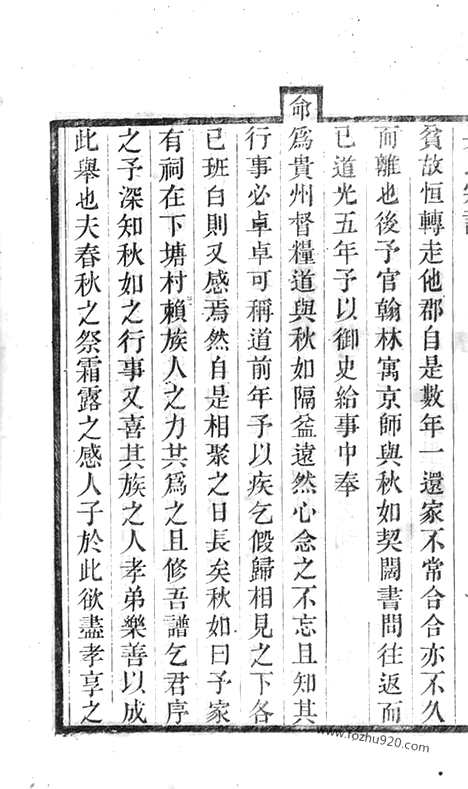 貧故恒轉走他郡自是數年一還家不常合合亦不久
而離也後予官翰林寓京師與秋如契闊書問往返而
已道光五年予以御史給事中奉
命爲貴州督糧道與秋如隔益遠然心念之不忘且知其
行事必卓卓可稱道前年予以疾乞假歸相見之下各
已班白則又感焉然自是相聚之日長矣秋如曰予家
有祠在下塘村賴族人之力共爲之且修吾譜乞君序
之予深知秋如之行事又喜其族之人孝弟樂善以成
此舉也夫春秋之祭霜露之感人子於此欲盡孝享之
www.fozhu920.com